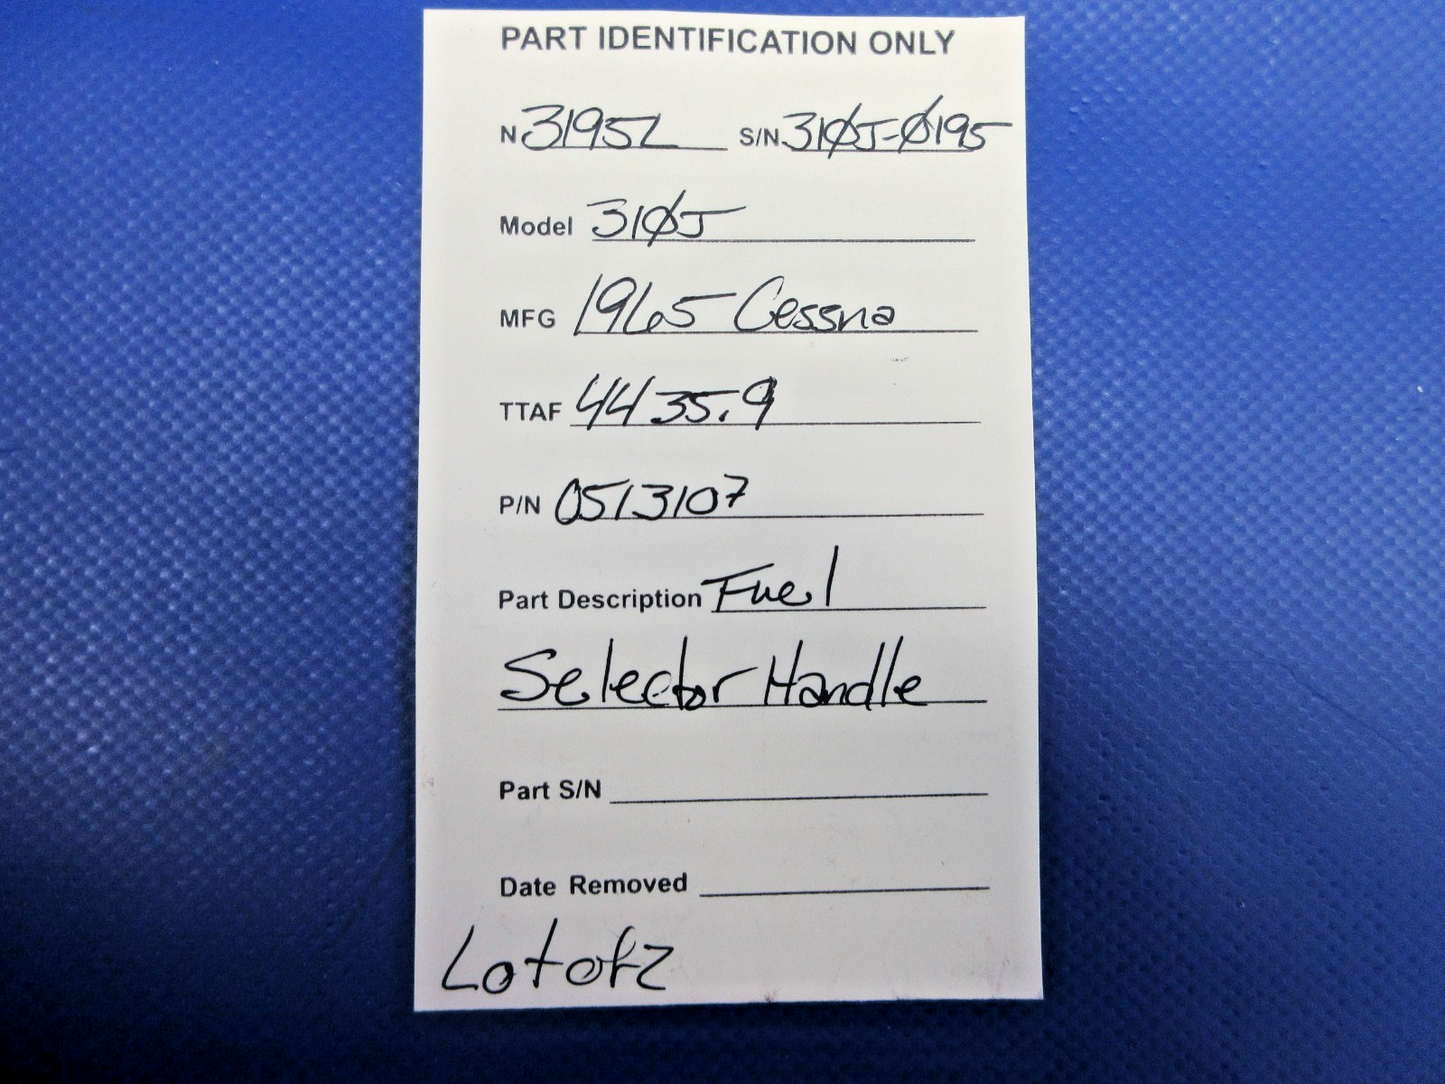 PART IDENTIFICATION ONLY
N 3195L S/N 310J-0195
Model 310J
MFG 1965 Cessna
TTAF 4435.9
P/N 0513107
Part Description Fuel
Selector Handle
Part S/N
Date Removed
Lot of 2